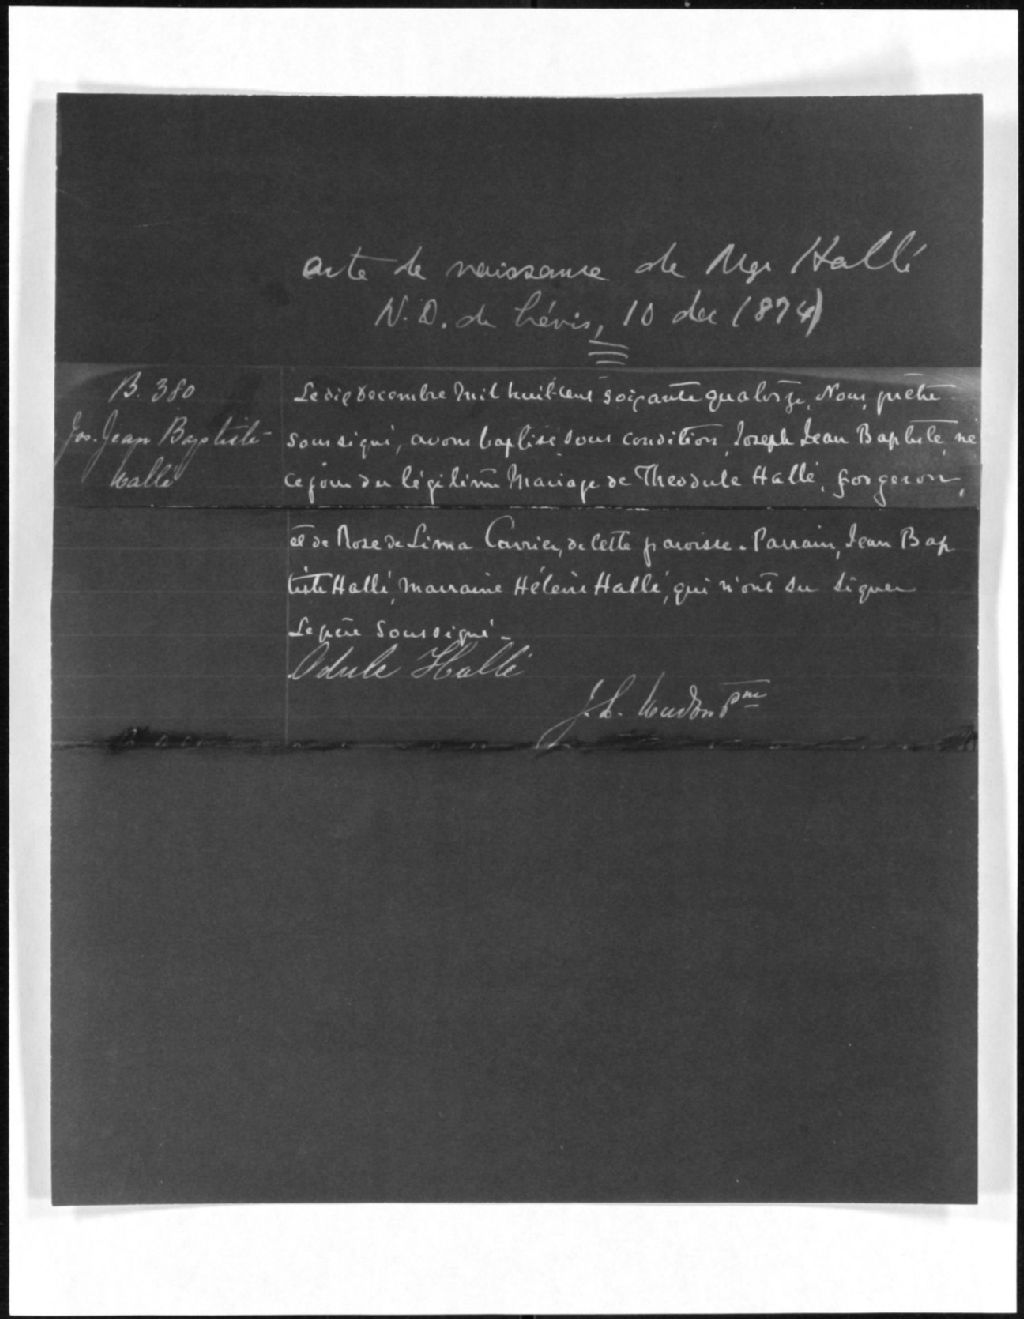 acte de naissance de Mgr Hallé
N. D. de Lévis, 10 dec 1874)
B. 380
Jos. Jean Baptiste
Hallé
Le dix Decembre Mil huit cent soixante quatorze, Nous, prêtre
soussigné, avons baptisé sous condition, Joseph Jean Baptiste, né
ce jour du légitime Mariage de Theodule Hallé, forgeron,
et de Rose de Lima Carrier, de cette paroisse. Parrain, Jean Bap
tiste Hallé, marraine Hélène Hallé, qui n'ont su signer
Le père soussigné.
Odule Hallé
J. L.